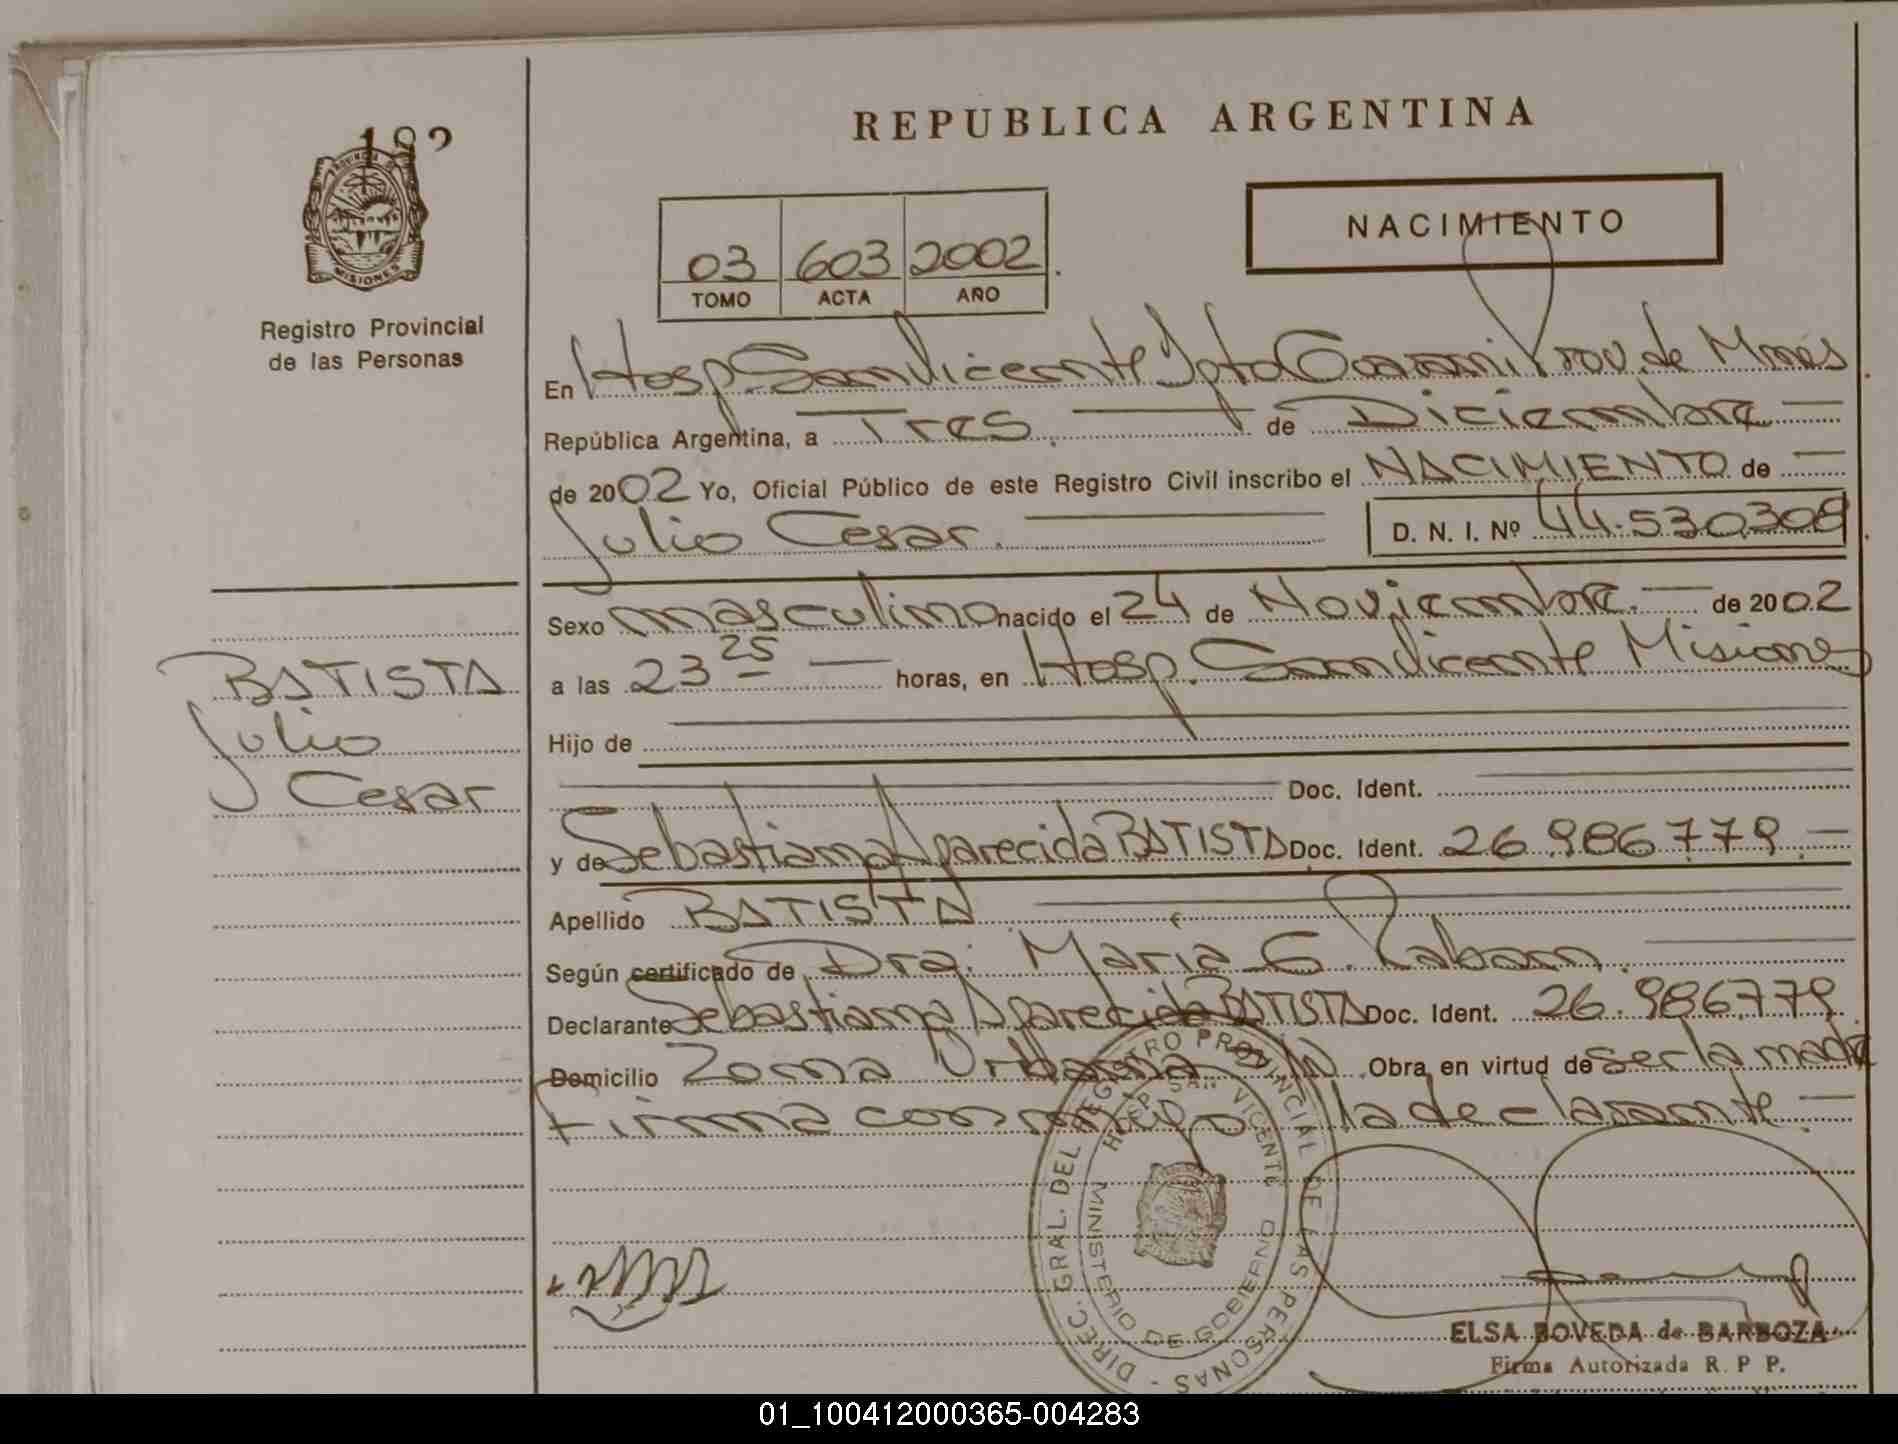 REPUBLICA ARGENTINA
PROVINCIA DE MISIONES
Registro Provincial
de las Personas
03 603 2002
TOMO ACTA AÑO
NACIMIENTO
En Hosp. San Vicente Dpto Guaraní Prov. de Mnes
República Argentina, a Tres de Diciembre
de 2002 Yo, Oficial Público de este Registro Civil inscribo el NACIMIENTO de
Julio Cesar. D. N. I. Nº 44.530.308
Sexo masculino nacido el 24 de Noviembre. de 2002
a las 23 25 horas, en Hosp. San Vicente Misiones
BATISTA
Julio
Cesar
Hijo de
Doc. Ident.
y de Sebastiana Aparecida BATISTA Doc. Ident. 26.986.779.
Apellido BATISTA
Según certificado de Dra. Maria G.
Declarante Sebastiana Aparecida BATISTA Doc. Ident. 26.986.779.
Domicilio Zona Urbana Obra en virtud de ser la madre
Firma conmigo la declarante.
DIREC. GRAL. DEL REGISTRO PROVINCIAL DE LAS PERSONAS -
HOSP. SAN VICENTE
MINISTERIO DE GOBIERNO
ELSA BOVEDA de BARBOZA
Firma Autorizada R. P P.
01_100412000365-004283